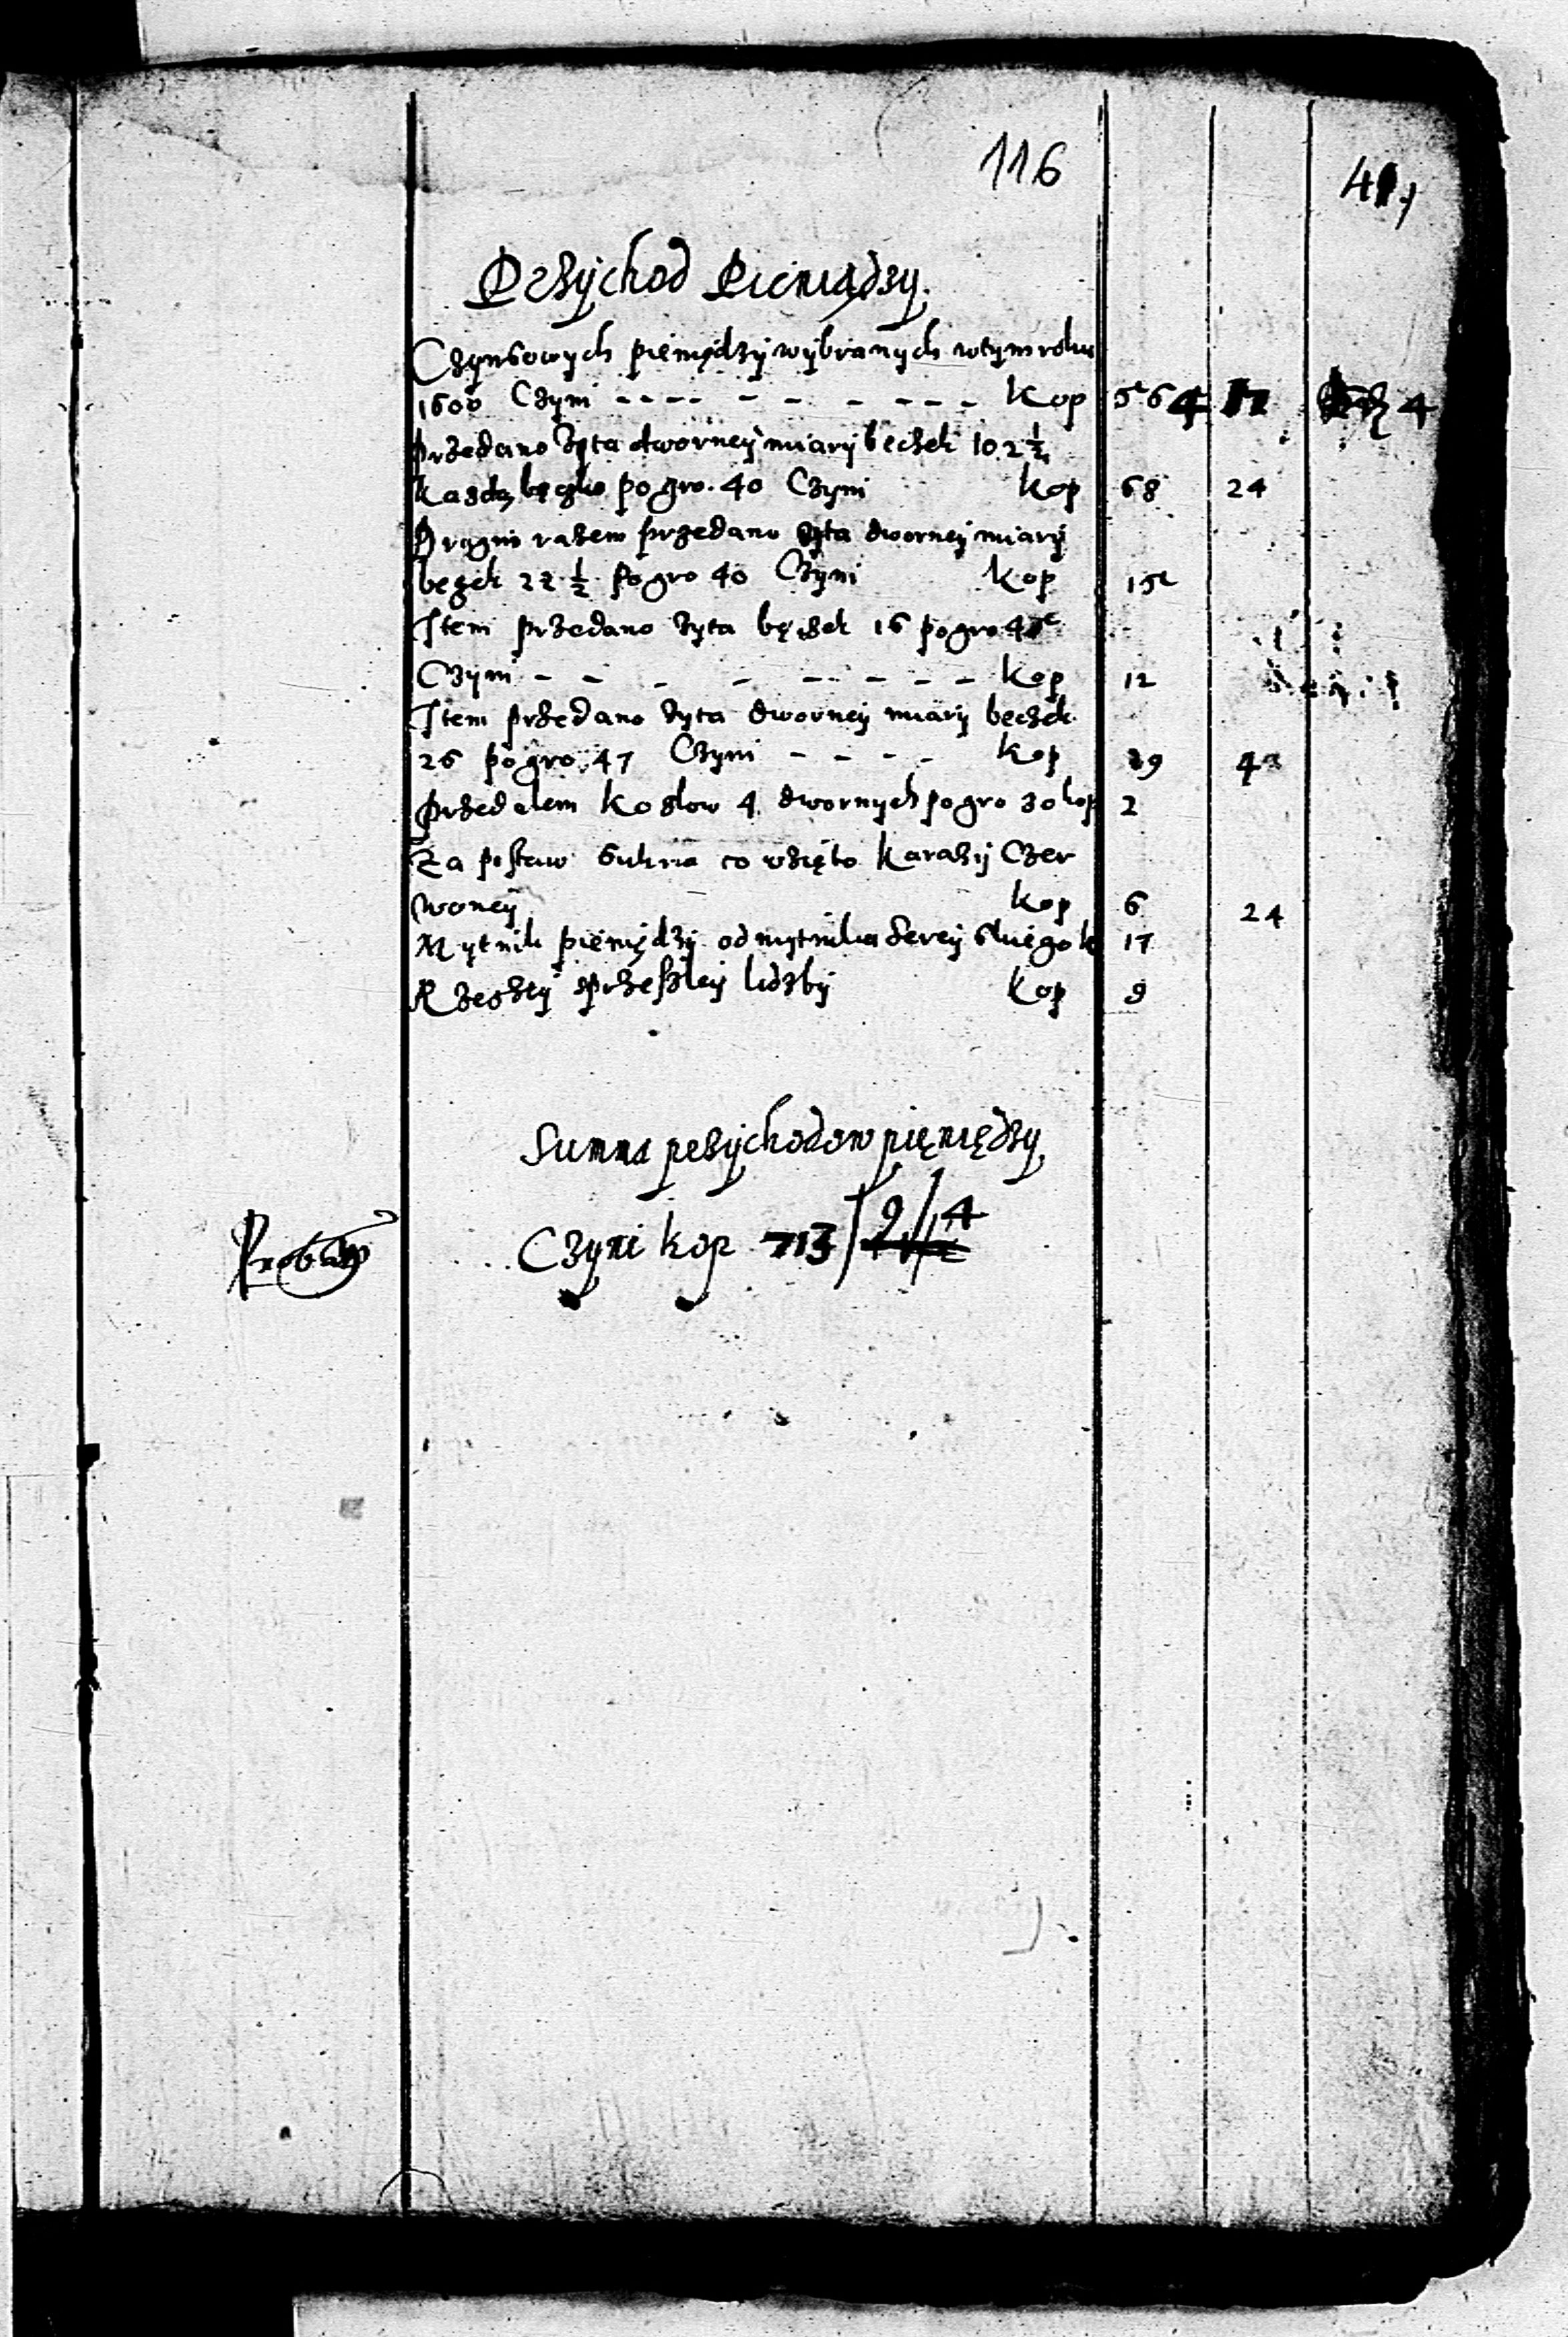 116
Przychod Pieniądzy.
Czynsowych pieniędzy wybranych w tym roku
1600 Czyni - - - - - - - - - - Kop 564
Przedano Zyta dworney miary beczek 102 ½
Kazdą beczko po gro. 40 Czyni Kop 68 24
Drugim razem przedano zyta dworney miary
beczek 22 ½ po gro 40 Czyni Kop 15
Item przedano zyta bęczek 16 po gro
Czyni - - - - - - - - Kop 12
Item przedano zyta dworney miary beczek
26 po gro. 47 Czyni - - - - Kop
przedalem Kozlow 4 dwornych po gro 30 kop 2
Za postaw sukna co wzięto Karazij Czer
woney Kop 6 24
Mytnik pieniędzy od mytnika k 17
Rzeszty przeszley liczby Kop 9
Summa przychodow pieniędzy
Czyni kop 713 / 9 / 4